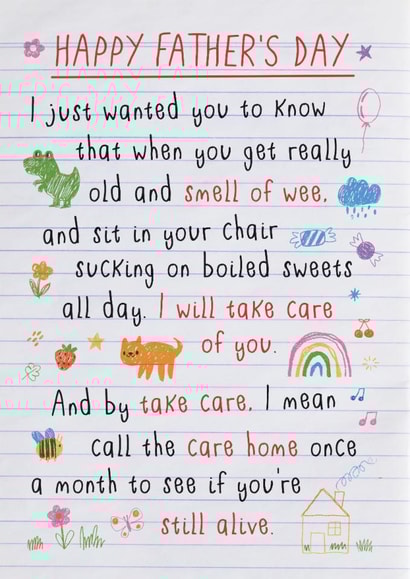 HAPPY FATHER'S DAY
I just wanted you to know
that when you get really
old and smell of wee,
and sit in your chair
sucking on boiled sweets
all day. I will take care
of you.
And by take care, I mean
call the care home once
a month to see if you're
still alive.